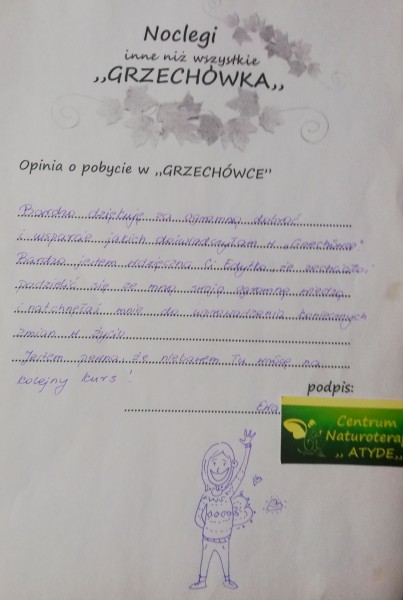 Noclegi
inne niż wszystkie
,,GRZECHÓWKA,,
Opinia o pobycie w ,,GRZECHÓWCE"
Bardzo dziękuję za ogromną dobroć
i wsparcie jakich doświadczyłam w ,,Grzechówce"
Bardzo jestem wdzięczna Ci Edytko, że zechciałaś
podzielić się ze mną swoją ogromną wiedzą
i natchnęłaś mnie do wprowadzenia koniecznych
zmian w życiu.
Jestem pewna, że niebawem Tu wrócę na
kolejny kurs!
podpis:
Ewa
Centrum
Naturoterap
,, ATYDE,,